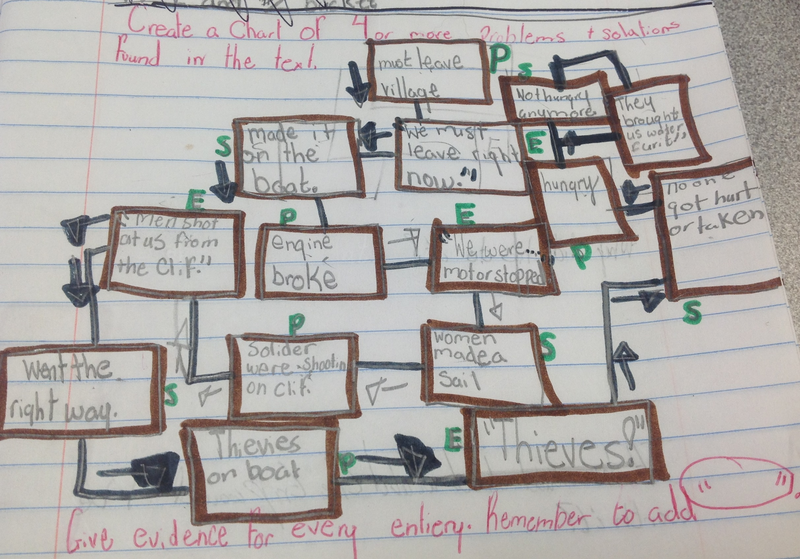 Create a Chart of 4 or more Problems + solations
found in the text.
must leave
village
P
"We must
leave right
now."
E
made it
on the
boat.
S
engine
broke
P
"We were...
motor stopped
E
women
made a
sail
S
Solider
were shootin
on clif.
P
"Men shot
at us from
the Clif."
E
Went the
right way.
S
Thieves
on boat
P
"Thieves!"
E
no one
got hurt
or taken
S
hungry
P
They
brought
us water
Not hungry
anymore
S
Give evidence for every entiery. Remember to add " ".